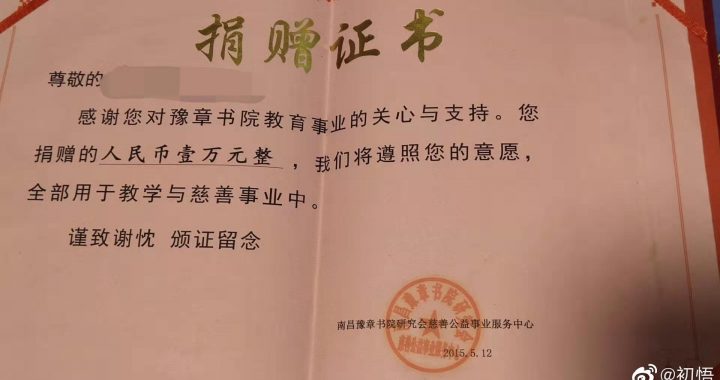 捐赠证书
尊敬的
感谢您对豫章书院教育事业的关心与支持。您
捐赠的人民币壹万元整，我们将遵照您的意愿，
全部用于教学与慈善事业中。
谨致谢忱 颁证留念
南昌豫章书院研究会慈善公益事业服务中心
2015.5.12
@初悟